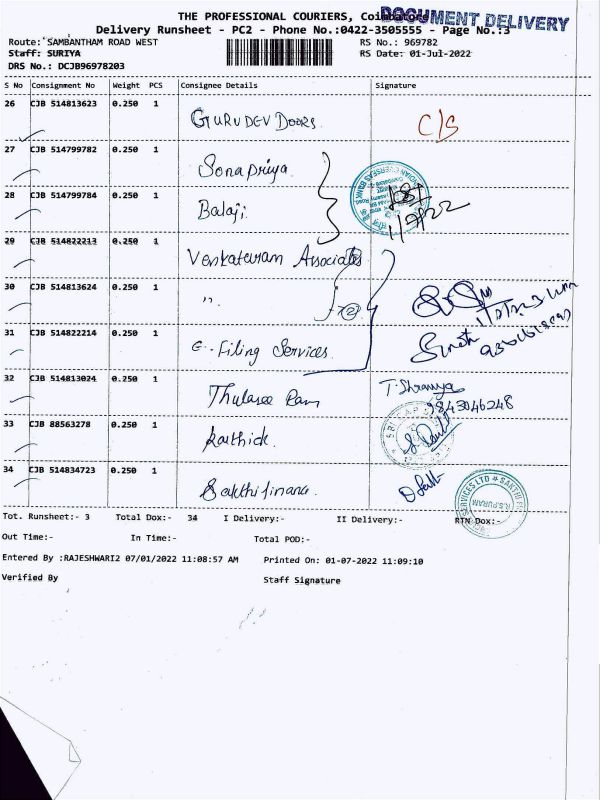 THE PROFESSIONAL COURIERS, Coimbatore
DOCUMENT DELIVERY
Delivery Runsheet - PC2 - Phone No.:0422-3505555 - Page No.:3
Route: SAMBANTHAM ROAD WEST RS No.: 969782
Staff: SURIYA RS Date: 01-Jul-2022
DRS No.: DCJB96978203
S No Consignment No Weight PCS Consignee Details Signature
26 CJB 514813623 0.250 1 GURUDEV Doors C/S
27 CJB 514799782 0.250 1 Sonapriya
28 CJB 514799784 0.250 1 Balaji 1/7/22
29 CJB 514822213 0.250 1 Venkateuram Associates
30 CJB 514813624 0.250 1 "
31 CJB 514822214 0.250 1 E-Filing Services
32 CJB 514813024 0.250 1 Thulasee Ram T. Shranya
9843046248
33 CJB 88563278 0.250 1 Karthick
34 CJB 514834723 0.250 1 Sakthi finance
Tot. Runsheet:- 3 Total Dox:- 34 I Delivery:- II Delivery:- RTN Dox:-
Out Time:- In Time:- Total POD:-
Entered By :RAJESHWARI2 07/01/2022 11:08:57 AM Printed On: 01-07-2022 11:09:10
Verified By Staff Signature